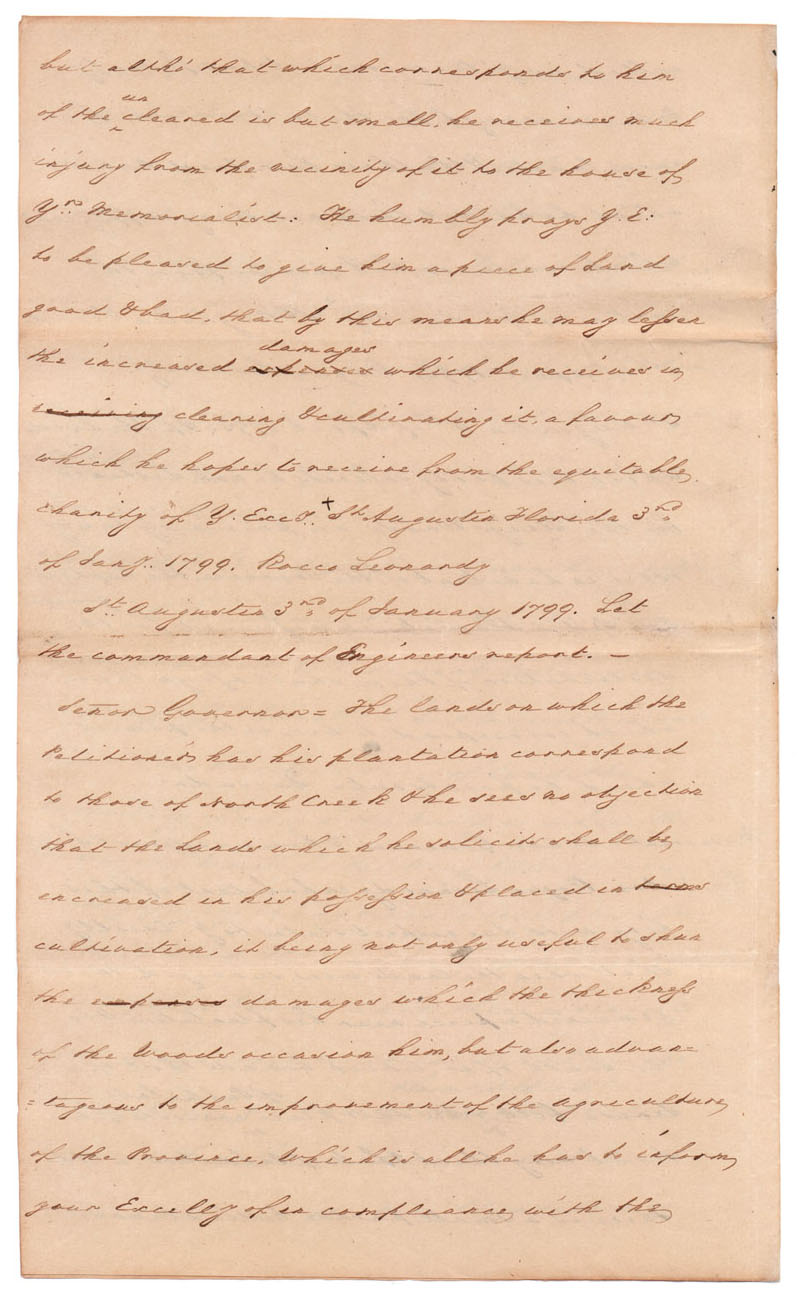 but altho' that which corresponds to him
of the uncleared is but small, he receives much
injury from the vicinity of it to the house of
Yr. Memorialist: He humbly prays Y. E:
to be pleased to give him a piece of Land
good & bad, that by this means he may lessen
the increased expenses damages which he receives in
receiving clearing & cultivating it, a favour
which he hopes to receive from the equitable
charity of Y. Excy. + St. Augustin Florida 3rd.
of Jany. 1799. Rocco Leonardy
St. Augustin 3rd. of January 1799. Let
the commandant of Engineers report. —
Señor Governor = The lands on which the
Petitioner has his plantation correspond
to those of North Creek & he sees no objection
that the Lands which he solicits shall be
increased in his possession & placed in
cultivation, it being not only useful to shun
the expenses damages which the thickness
of the Woods occasion him, but also advan=
=tageous to the improvement of the agriculture
of the Province, Which is all he has to inform
your Excelly of in compliance with the